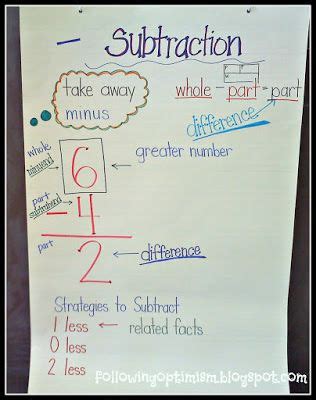 – Subtraction
take away
minus
whole - part = part
difference
whole
minuend
6 ← greater number
part
subtrahend
- 4
part
2 ← difference
Strategies to Subtract
1 less ← related facts
0 less
2 less
followingoptimism.blogspot.com